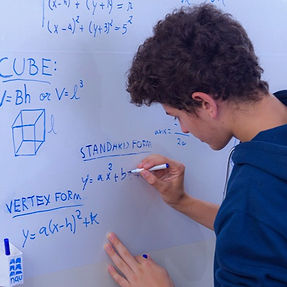 (x-h)² + (y+k)² = r
(x-4)² + (y+3)² = 5²
CUBE:
V=Bh or V=l³
l
STANDARD FORM
y=ax²+b
axis=
2a
VERTEX FORM
y=a(x-h)²+k
nau